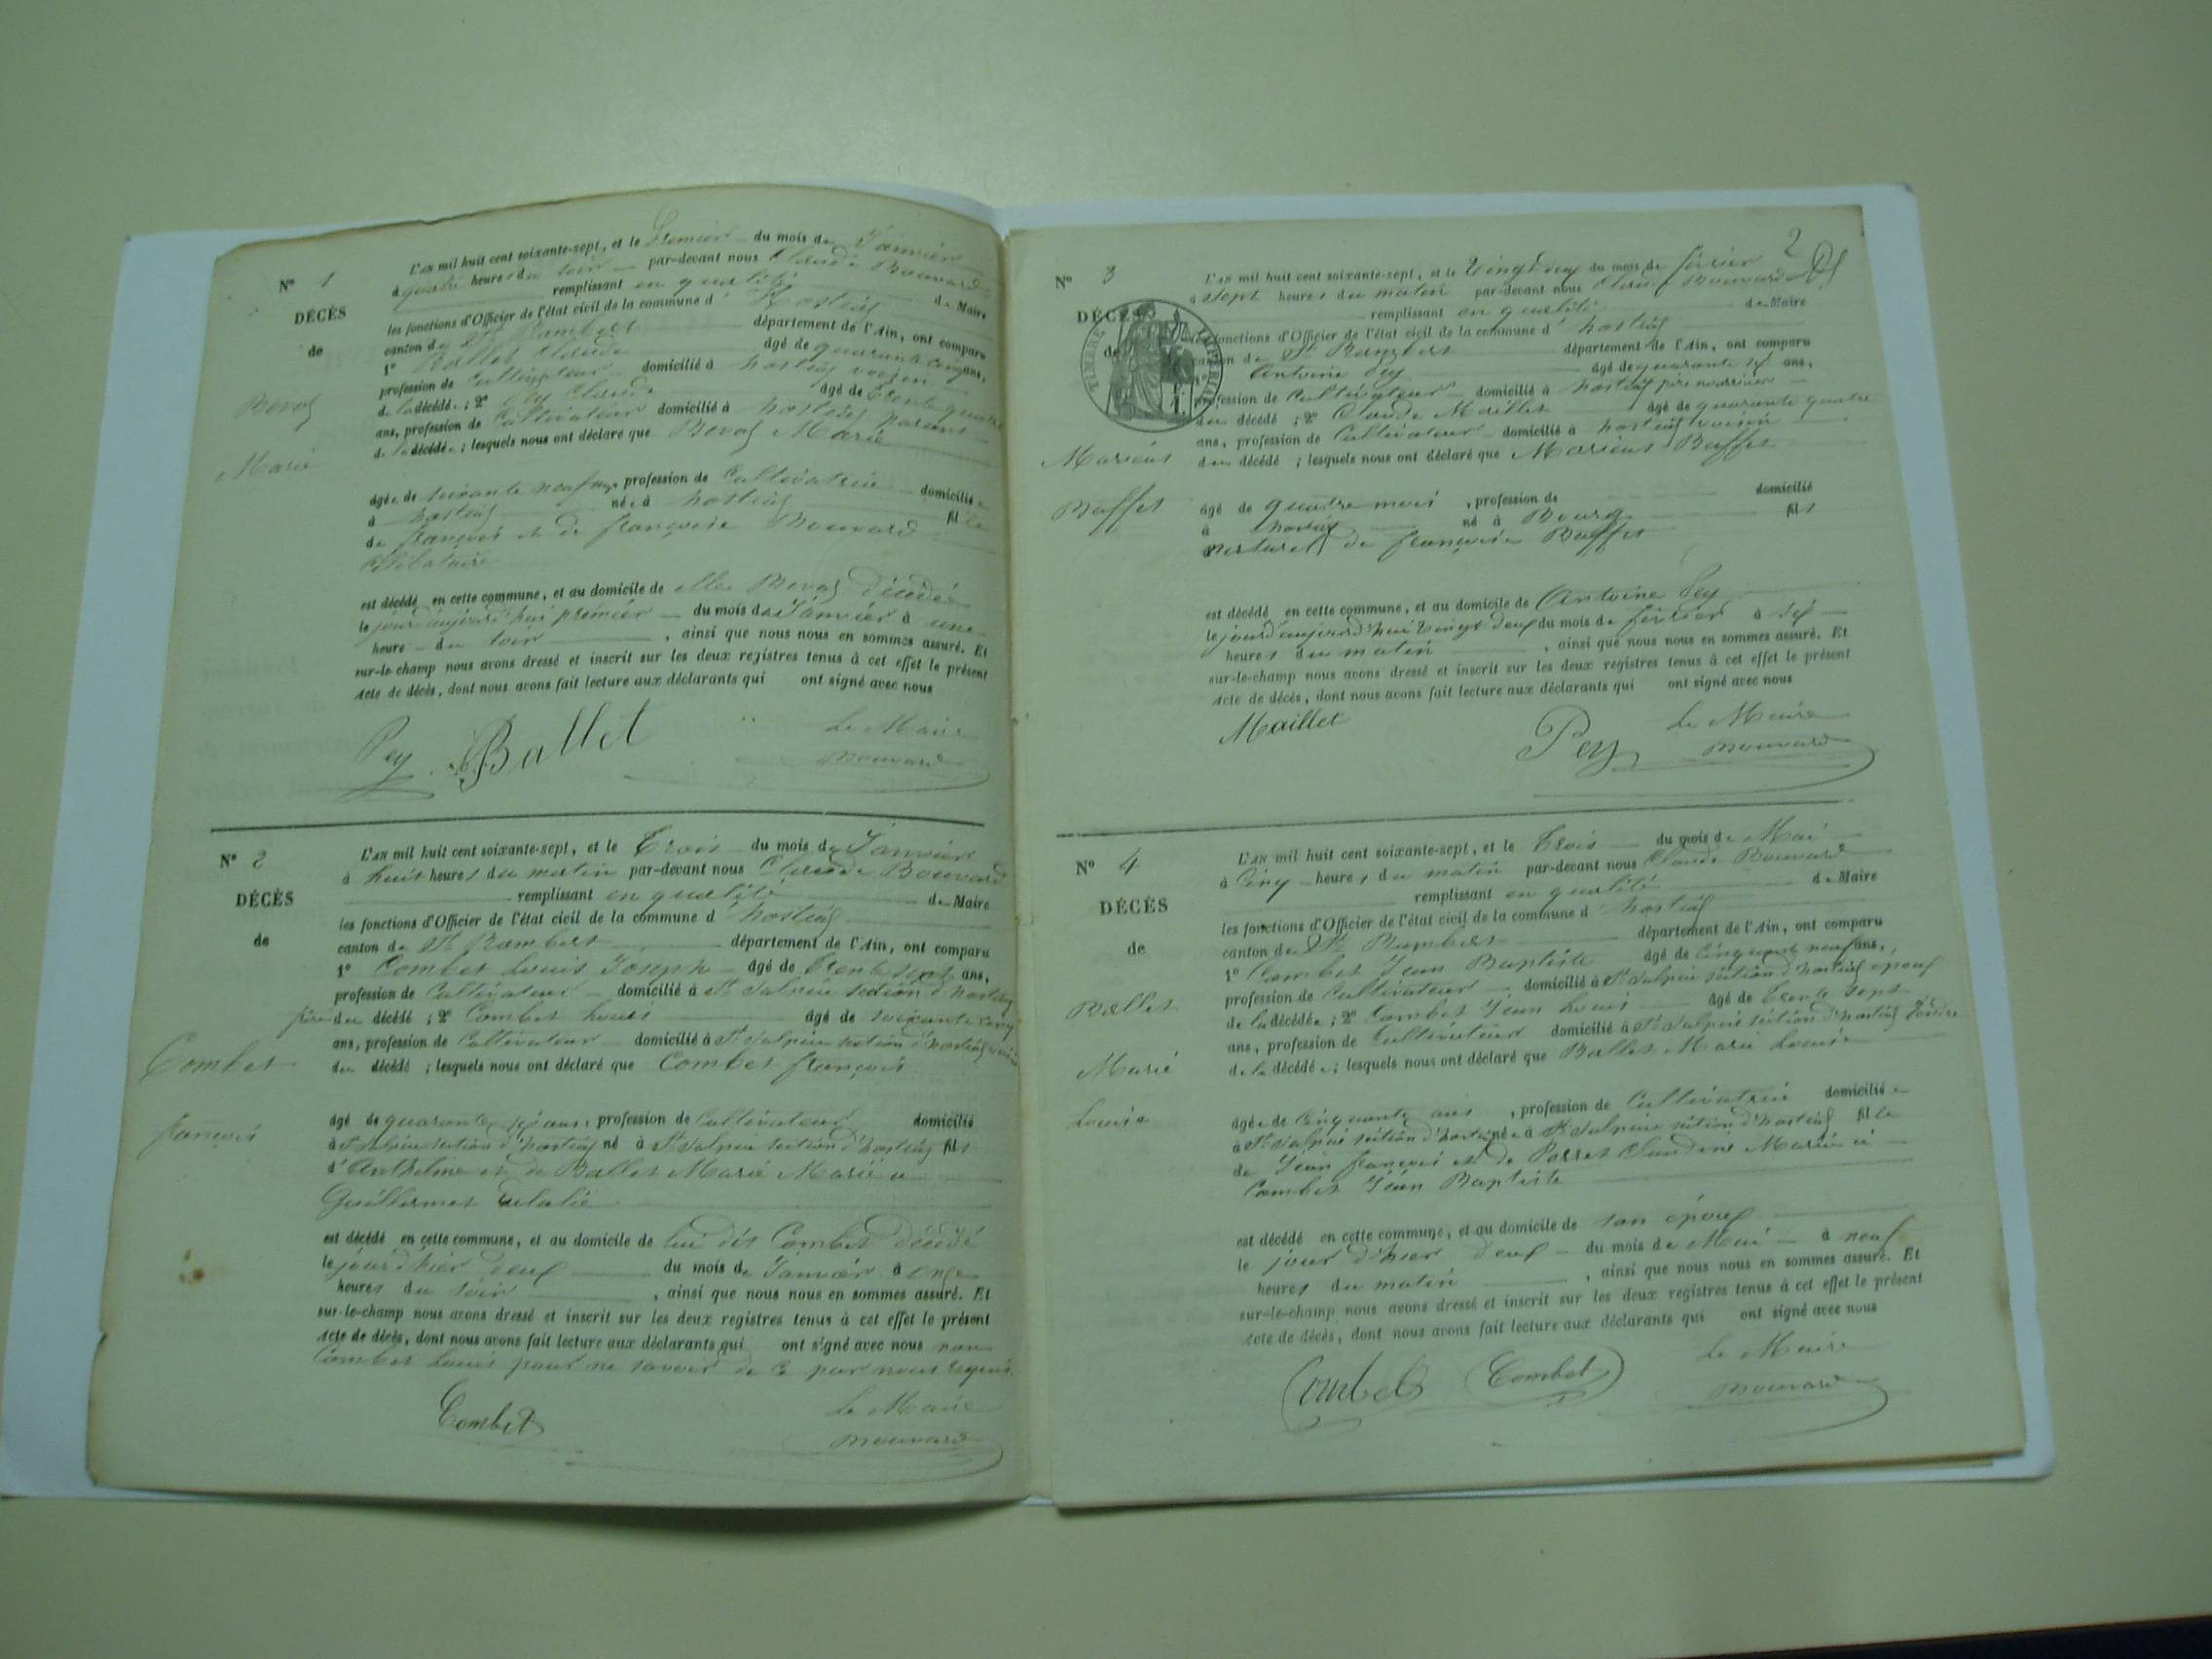 N° 1
DÉCÈS
de
Bovas
Marie
L'an mil huit cent soixante-sept, et le Premier du mois de Janvier
à quatre heures du soir par-devant nous Claude Bouvard
remplissant en qualité de Maire
les fonctions d'Officier de l'état civil de la commune d'hostias
canton de St Rambert département de l'Ain, ont comparu
1° Ballet Claude âgé de quarante cinq ans,
profession de Cultivateur domicilié à hostias voisin
de la décédée ; 2° Pey Claude âgé de trente quatre
ans, profession de Cultivateur domicilié à hostias
de la décédée ; lesquels nous ont déclaré que Marie
âgée de soixante neuf ans profession de Cultivatrice domiciliée
à hostias née à hostias fille
de françois et de françoise Bouvard
Célibataire
est décédé en cette commune, et au domicile de elle décédée
le jour aujourd'hui premier du mois de Janvier à une
heure du soir , ainsi que nous nous en sommes assuré. Et
sur-le-champ nous avons dressé et inscrit sur les deux registres tenus à cet effet le présent
acte de décès, dont nous avons fait lecture aux déclarants qui ont signé avec nous
Pey Ballet Le Maire
Bouvard
N° 2
DÉCÈS
de
Combet
françois
L'an mil huit cent soixante-sept, et le Trois du mois de Janvier
à huit heures du matin par-devant nous Claude Bouvard
remplissant en qualité de Maire
les fonctions d'Officier de l'état civil de la commune d'hostias
canton de St Rambert département de l'Ain, ont comparu
1° Combet Louis Joseph âgé de trente sept ans,
profession de Cultivateur domicilié à St Sulpice section d'hostias
frère du décédé ; 2° Combet Louis âgé de soixante cinq
ans, profession de Cultivateur domicilié à St Sulpice section d'hostias
du décédé ; lesquels nous ont déclaré que Combet françois
âgé de quarante six ans, profession de Cultivateur domicilié
à St Sulpice section d'hostias né à St Sulpice section d'hostias fils
d'Anthelme et de Ballet Marie Marié a
Guillermet Eulalie
est décédé en cette commune, et au domicile de lui dit Combet décédé
le jour d'hier deux du mois de Janvier à onze
heures du soir , ainsi que nous nous en sommes assuré. Et
sur-le-champ nous avons dressé et inscrit sur les deux registres tenus à cet effet le présent
acte de décès, dont nous avons fait lecture aux déclarants qui ont signé avec nous non
Combet Louis pour ne savoir de ce par nous requis
Combet Le Maire
Bouvard
2
N° 3
DÉCÈS
de
TIMBRE IMPÉRIAL
Marius
Buffet
L'an mil huit cent soixante-sept, et le Vingt deux du mois de février
à sept heures du matin par-devant nous Claude Bouvard
remplissant en qualité de Maire
fonctions d'Officier de l'état civil de la commune d'hostias
canton de St Rambert département de l'Ain, ont comparu
Antoine Pey âgé de quarante six ans,
profession de Cultivateur domicilié à hostias père nourricier
du décédé ; 2° Claude Maillet âgé de quarante quatre
ans, profession de Cultivateur domicilié à hostias voisin
du décédé ; lesquels nous ont déclaré que Marius Buffet
âgé de quatre mois , profession de domicilié
à hostias né à Bourg fils
naturel de françoise Buffet
est décédé en cette commune, et au domicile de Antoine Pey
le jour d'aujourd'hui vingt deux du mois de février à six
heures du matin , ainsi que nous nous en sommes assuré. Et
sur-le-champ nous avons dressé et inscrit sur les deux registres tenus à cet effet le présent
acte de décès, dont nous avons fait lecture aux déclarants qui ont signé avec nous
Maillet Pey Le Maire
Bouvard
N° 4
DÉCÈS
de
Ballet
Marie
Louise
L'an mil huit cent soixante-sept, et le Trois du mois de Mai
à Cinq heures du matin par-devant nous Claude Bouvard
remplissant en qualité de Maire
les fonctions d'Officier de l'état civil de la commune d'hostias
canton de St Rambert département de l'Ain, ont comparu
1° Combet Jean Baptiste âgé de cinquante neuf ans,
profession de Cultivateur domicilié à St Sulpice section d'hostias époux
de la décédée ; 2° Combet Jean Louis âgé de trente sept
ans, profession de Cultivateur domicilié à St Sulpice section d'hostias Gendre
de la décédée ; lesquels nous ont déclaré que Ballet Marie Louise
âgée de Cinquante ans , profession de Cultivatrice domiciliée
à St Sulpice section d'hostias née à St Sulpice section d'hostias fille
de Jean françois et de Perret Claudine Mariée à
Combet Jean Baptiste
est décédé en cette commune, et au domicile de son époux
le jour d'hier deux du mois de Mai à neuf
heures du matin , ainsi que nous nous en sommes assuré. Et
sur-le-champ nous avons dressé et inscrit sur les deux registres tenus à cet effet le présent
acte de décès, dont nous avons fait lecture aux déclarants qui ont signé avec nous
Combet Combet Le Maire
Bouvard